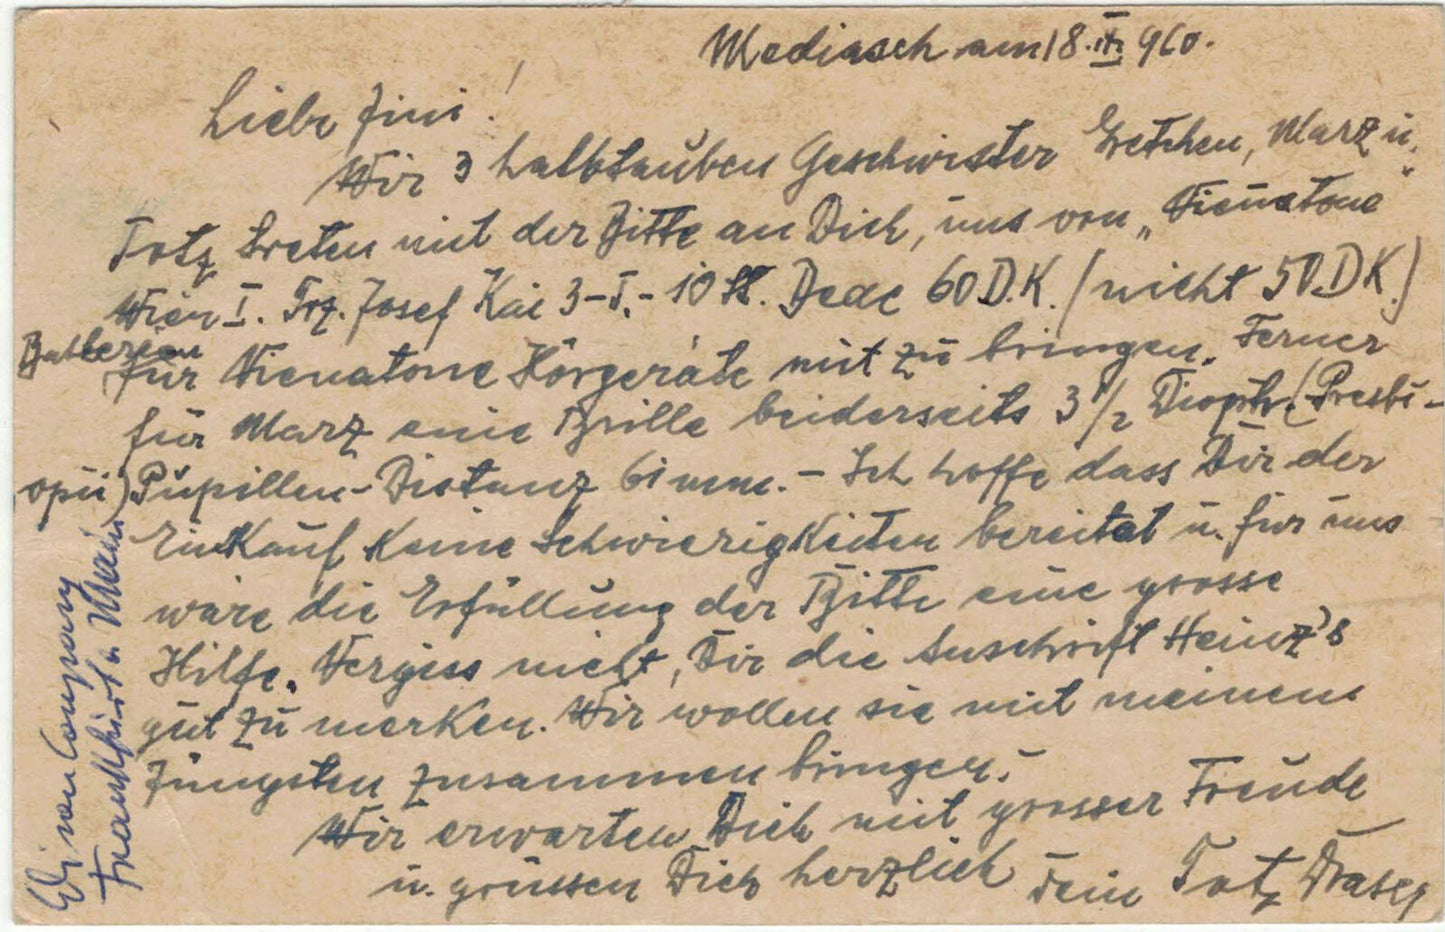 Mediasch am 18. III 960.
Liebe Fini!
Wir 3 halbtauben Geschwister Gretchen, Marz u.
Totz treten mit der Bitte an Dich, uns von „Vienatone"
Wien I. Frz. Josef Kai 3-I.- 10 St. Dedc 60 D.K. (nicht 50 DK.)
Batterien
für Vienatone Hörgeräte mit zu bringen. Ferner
für Marz eine Brille beiderseits 3 1/2 Dioptr. (Presbi-
opii) Pupillen-Distanz 61 mm. - Ich hoffe dass Dir der
Einkauf keine Schwierigkeiten bereitet u. für uns
wäre die Erfüllung der Bitte eine grosse
Hilfe. Vergiss nicht, Dir die Anschrift Heinz's
gut zu merken. Wir wollen sie mit meinem
Jüngsten zusammen bringen.
Wir erwarten Dich mit grosser Freude
u. grüssen Dich herzlich Dein Totz
company
Frankfurt a. Main